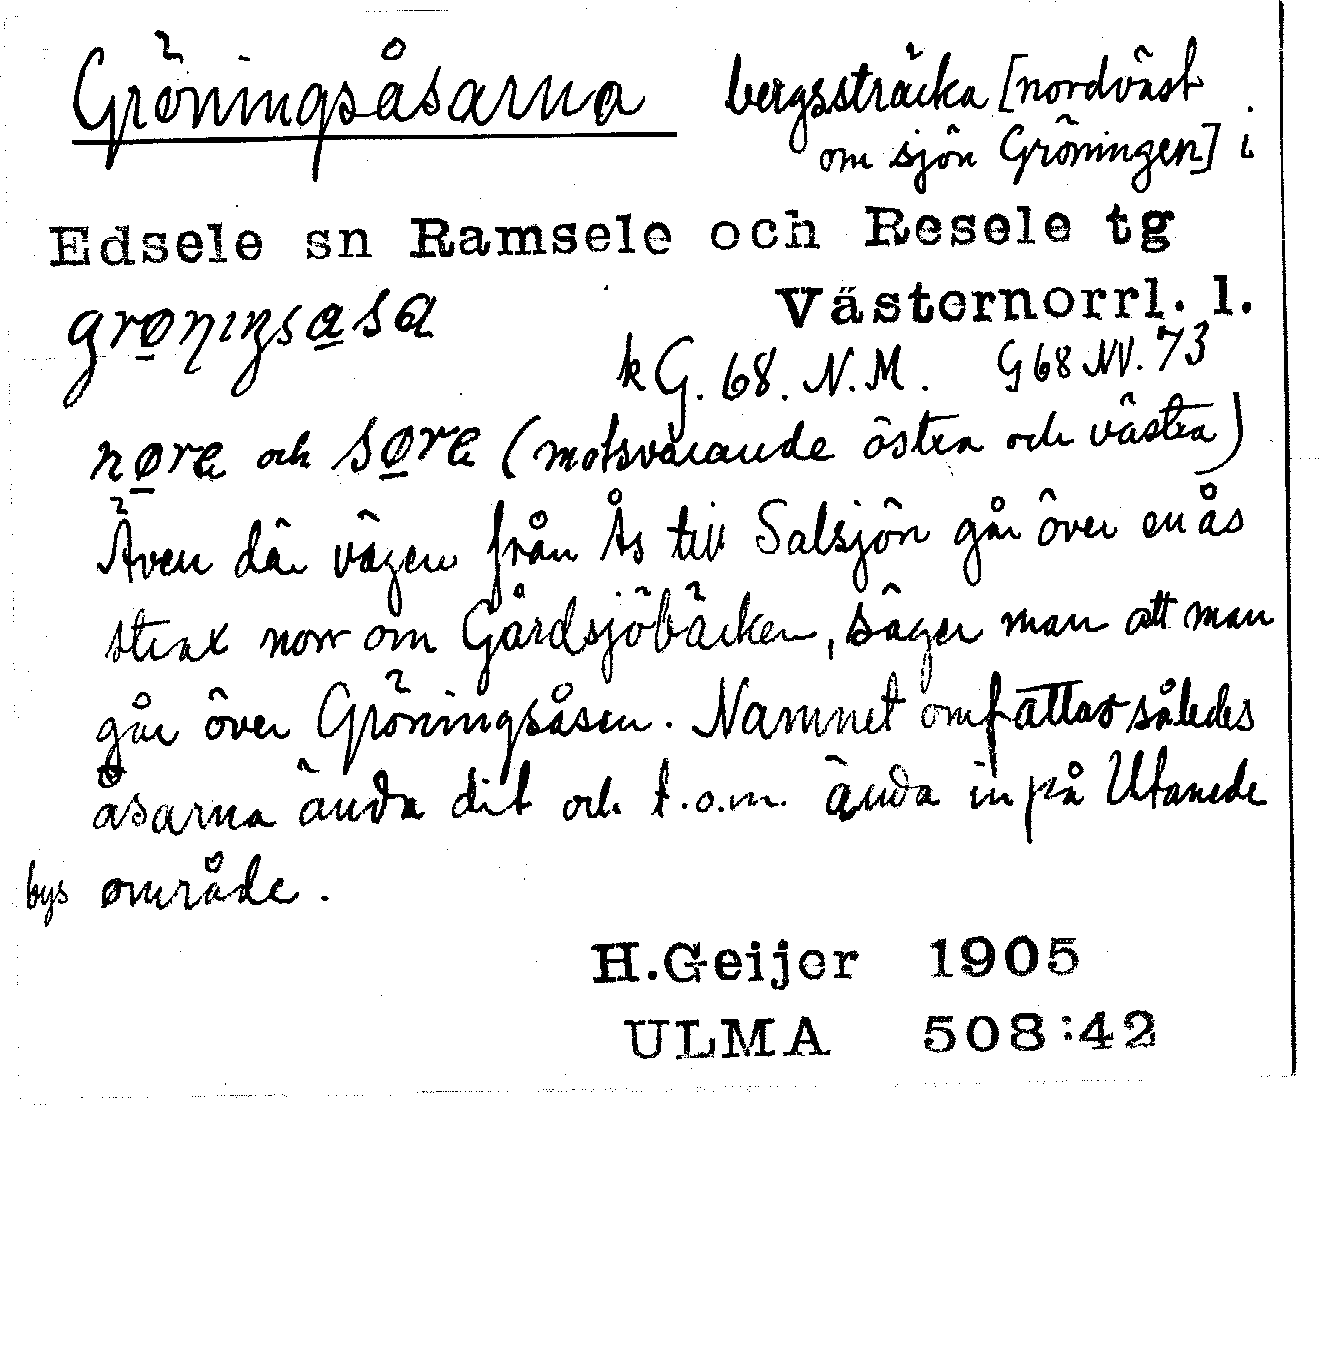 Gröningsåsarna bergssträcka [nordväst
om sjön Gröningen] i
Edsele sn Ramsele och Resele tg
Västernorrl. l.
grøniŋsasa
k G. 68. N.M. G 68 NV. 73
nøre och søre (motsvarande östra och västra)
Även där vägen från Ås till Salsjön går över en ås
strax norr om Gårdsjöbäcken, säger man att man
går över Gröningsåsen. Namnet omfattar således
åsarna ända dit och t.o.m. ända in på Utanede
bys område.
H.Geijer 1905
ULMA 508:42